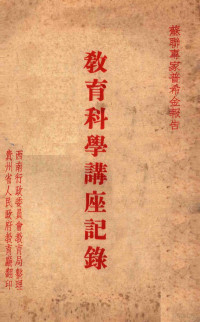 蘇聯專家普希金報告
教育科學講座記錄
西南行政委員會教育局整理
貴州省人民政府教育廳翻印